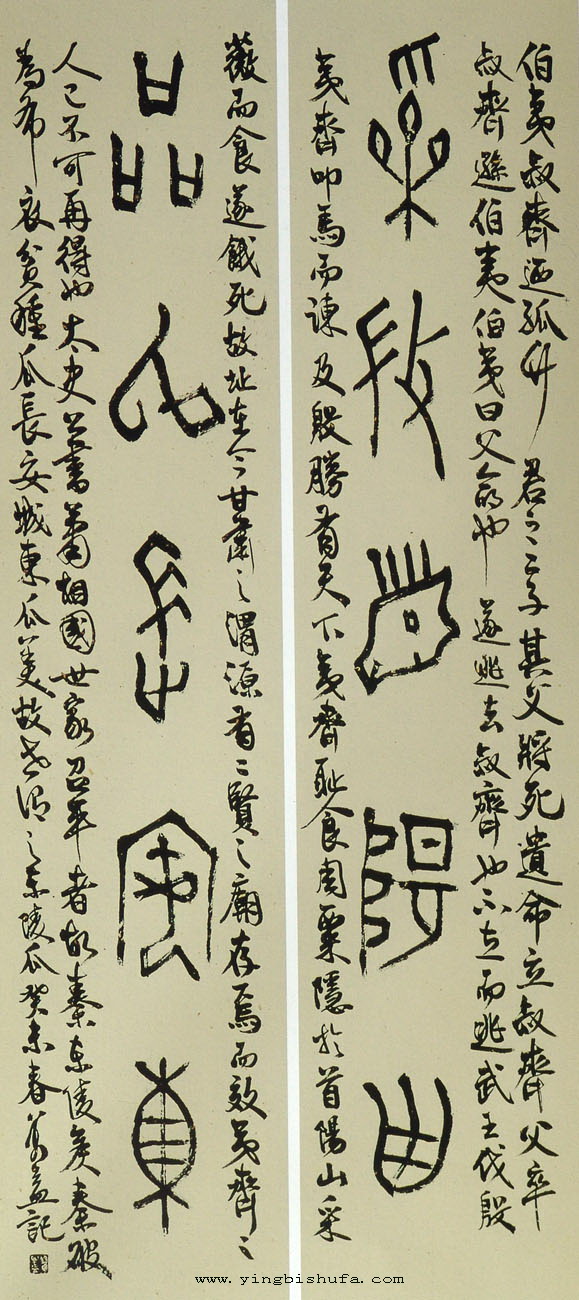 伯夷叔齊迺孤竹君之二子其父將死遺命立叔齊父卒
叔齊遜伯夷伯夷曰父命也遂逃去叔齊也不立而逃武王伐殷
采薇首陽曲
夷齊叩馬而諫及殷勝有天下夷齊恥食周粟隱於首陽山采
薇而食遂餓死故址在今甘肅之渭源有二賢之廟存焉而效夷齊之
品瓜長安東
人已不可再得也太史公書蕭相國世家召平者故秦東陵侯秦破
為布衣貧種瓜長安城東瓜美故世謂之東陵瓜癸未春記
www.yingbishufa.com